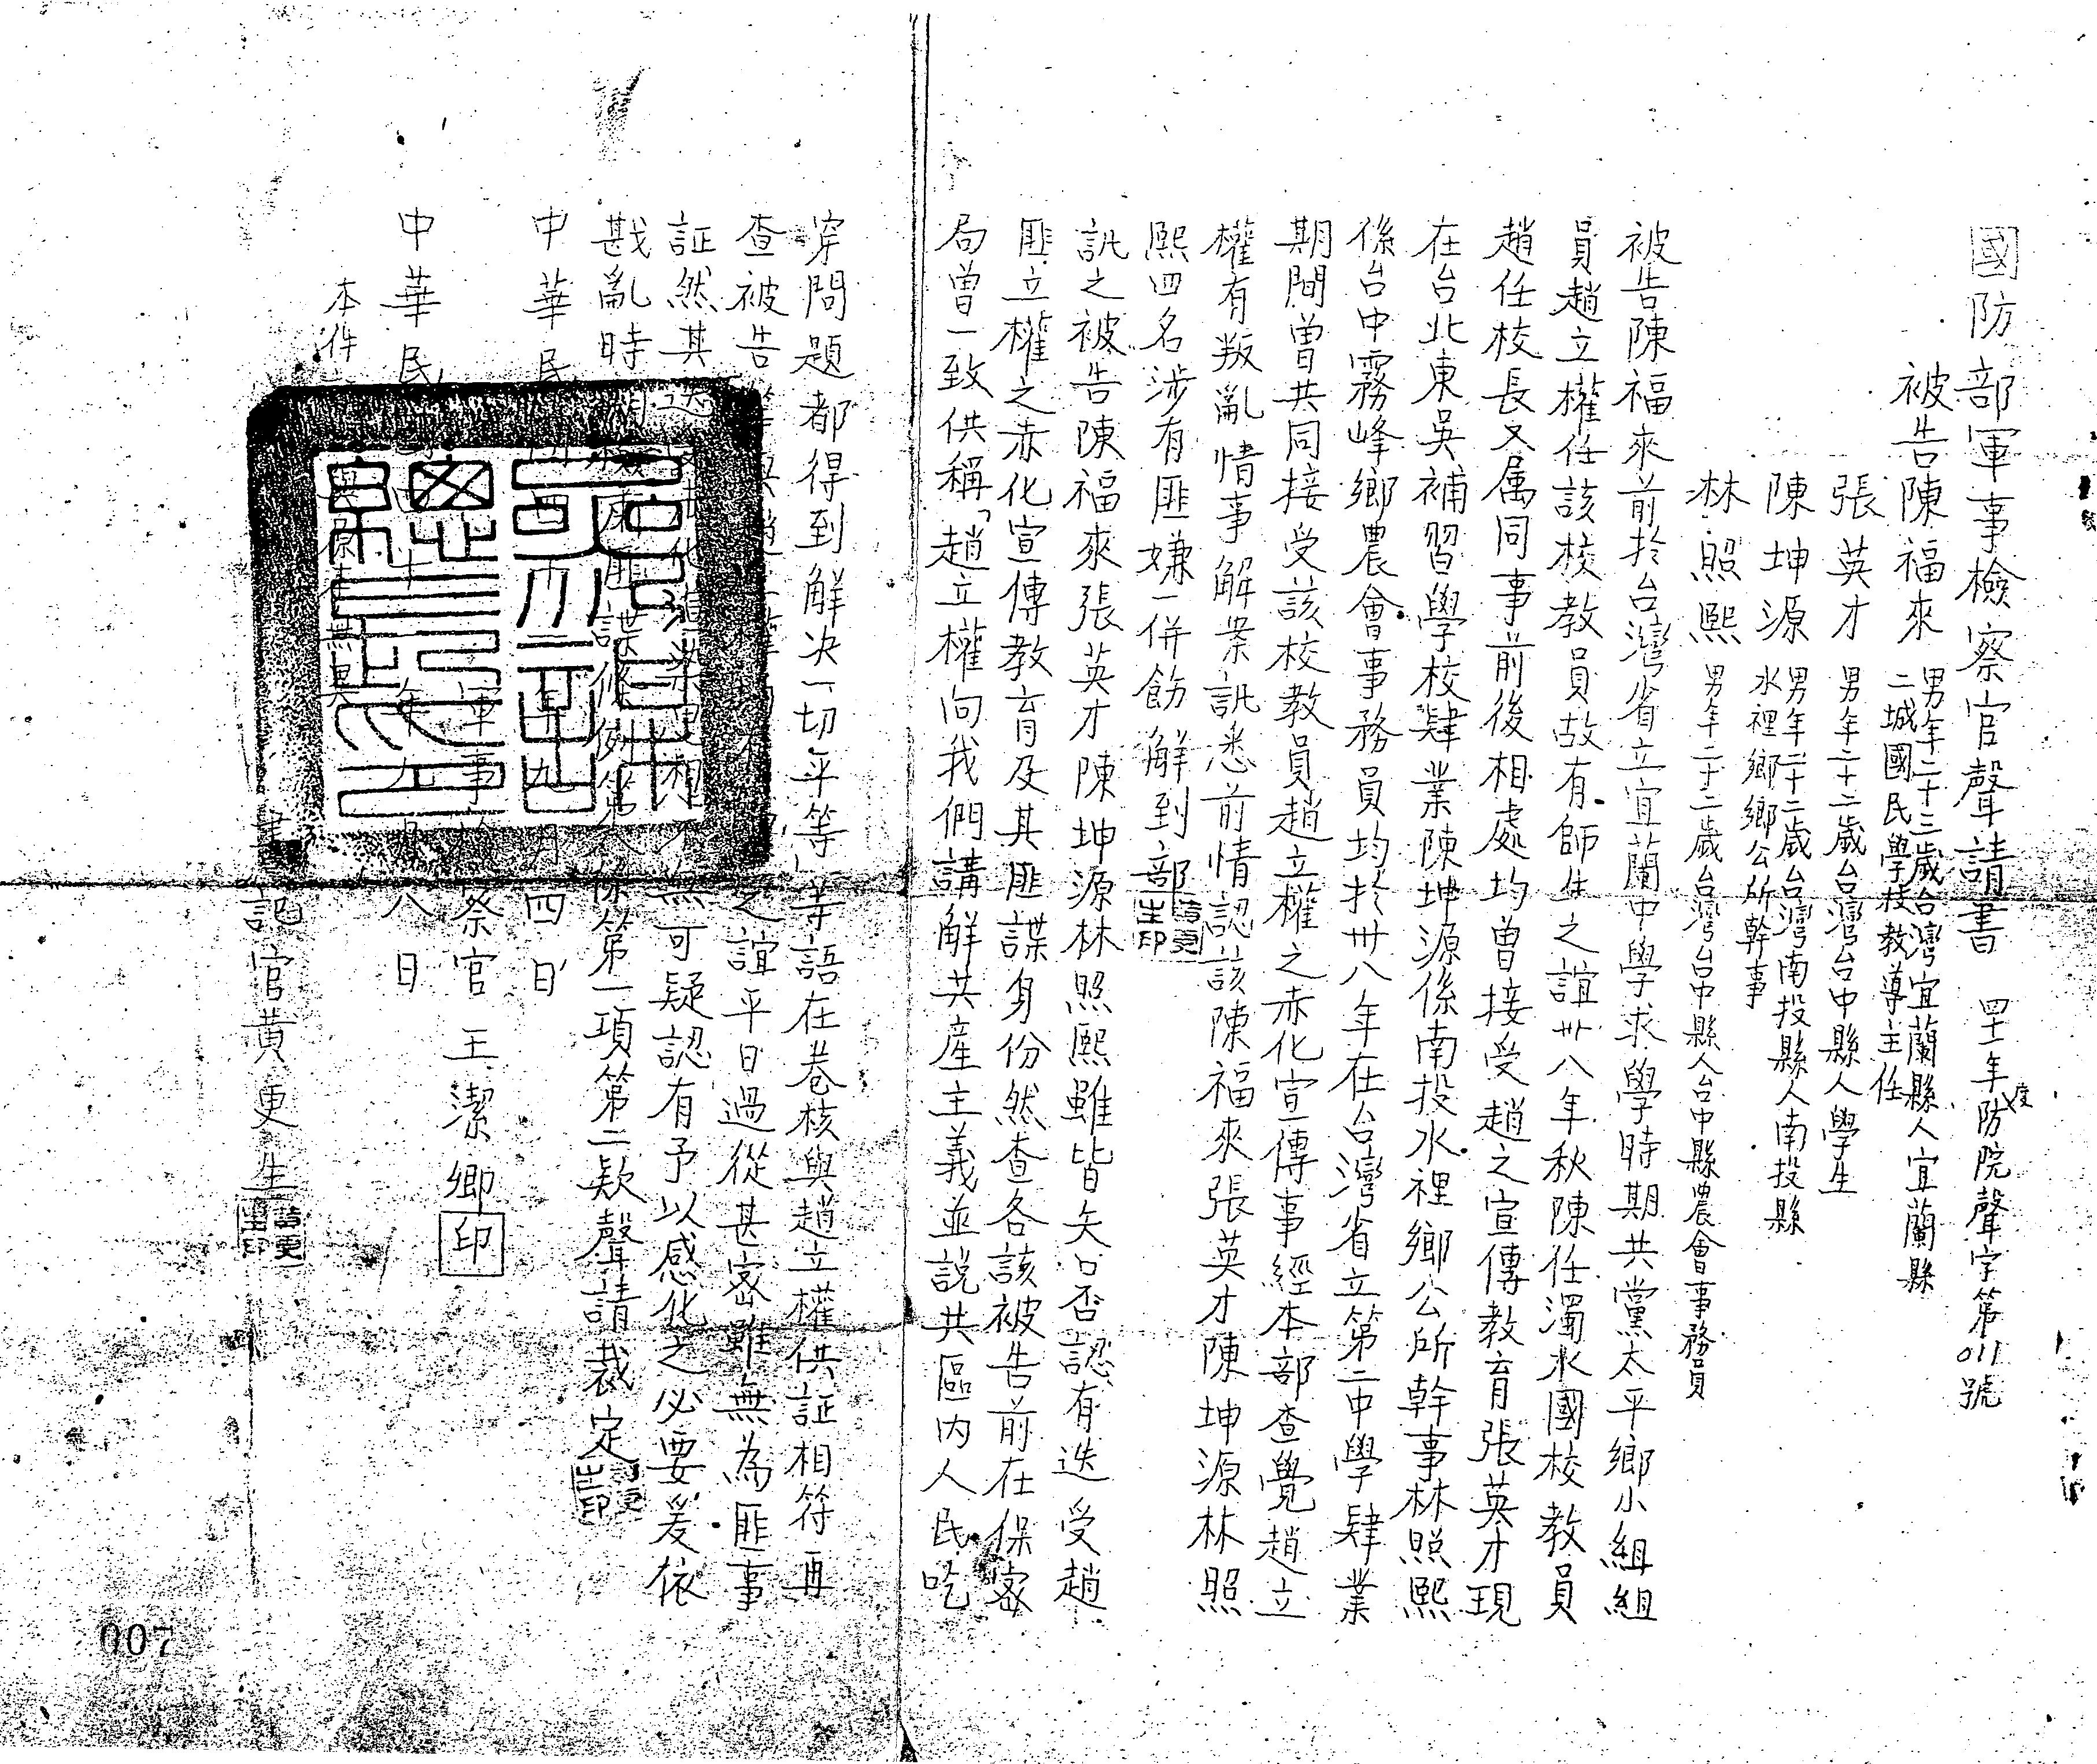 國防部軍事檢察官聲請書 四一年度防院聲字第011號
被告陳福來 男年二十三歲台灣宜蘭縣人宜蘭縣
二城國民學校教導主任
張英才 男年二十二歲台灣台中縣人學生
陳坤源 男年二十二歲台灣南投縣人南投縣
水裡鄉鄉公所幹事
林照熙 男年二十二歲台灣台中縣人台中縣農會事務員
被告陳福來前於台灣省立宜蘭中學求學時期共黨太平鄉小組組
員趙立權任該校教員故有師生之誼卅八年秋陳任濁水國校教員
趙任校長又属同事前後相處均曾接受趙之宣傳教育張英才現
在台北東吳補習學校肆業陳坤源係南投水裡鄉公所幹事林照熙
係台中霧峰鄉農會事務員均於卅八年在台灣省立第二中學肆業
期間曾共同接受該校教員趙立權之赤化宣傳事經本部查覺趙立
權有叛亂情事解案訊悉前情認該陳福來張英才陳坤源林照
熙四名涉有匪嫌一併飭解到部
訊之被告陳福來張英才陳坤源林照熙雖皆矢口否認有迭受趙
匪立權之赤化宣傳教育及其匪諜身份然查各該被告前在保密
局曾一致供稱「趙立權向我們講解共產主義並説共區内人民吃
穿問題都得到解决一切平等」等語在卷核與趙立權供証相符再
查被告等與趙立權之誼平日過從甚密雖無為匪事
証然其迭無可疑認有予以感化之必要爰依
戡亂時期檢肅匪諜條例第八條第一項第二款聲請裁定
中華民國四十一年九月四日
軍事檢察官王潔卿 印
中華民國四十一年九月八日
本件與原本無異
書記官黃更生
007